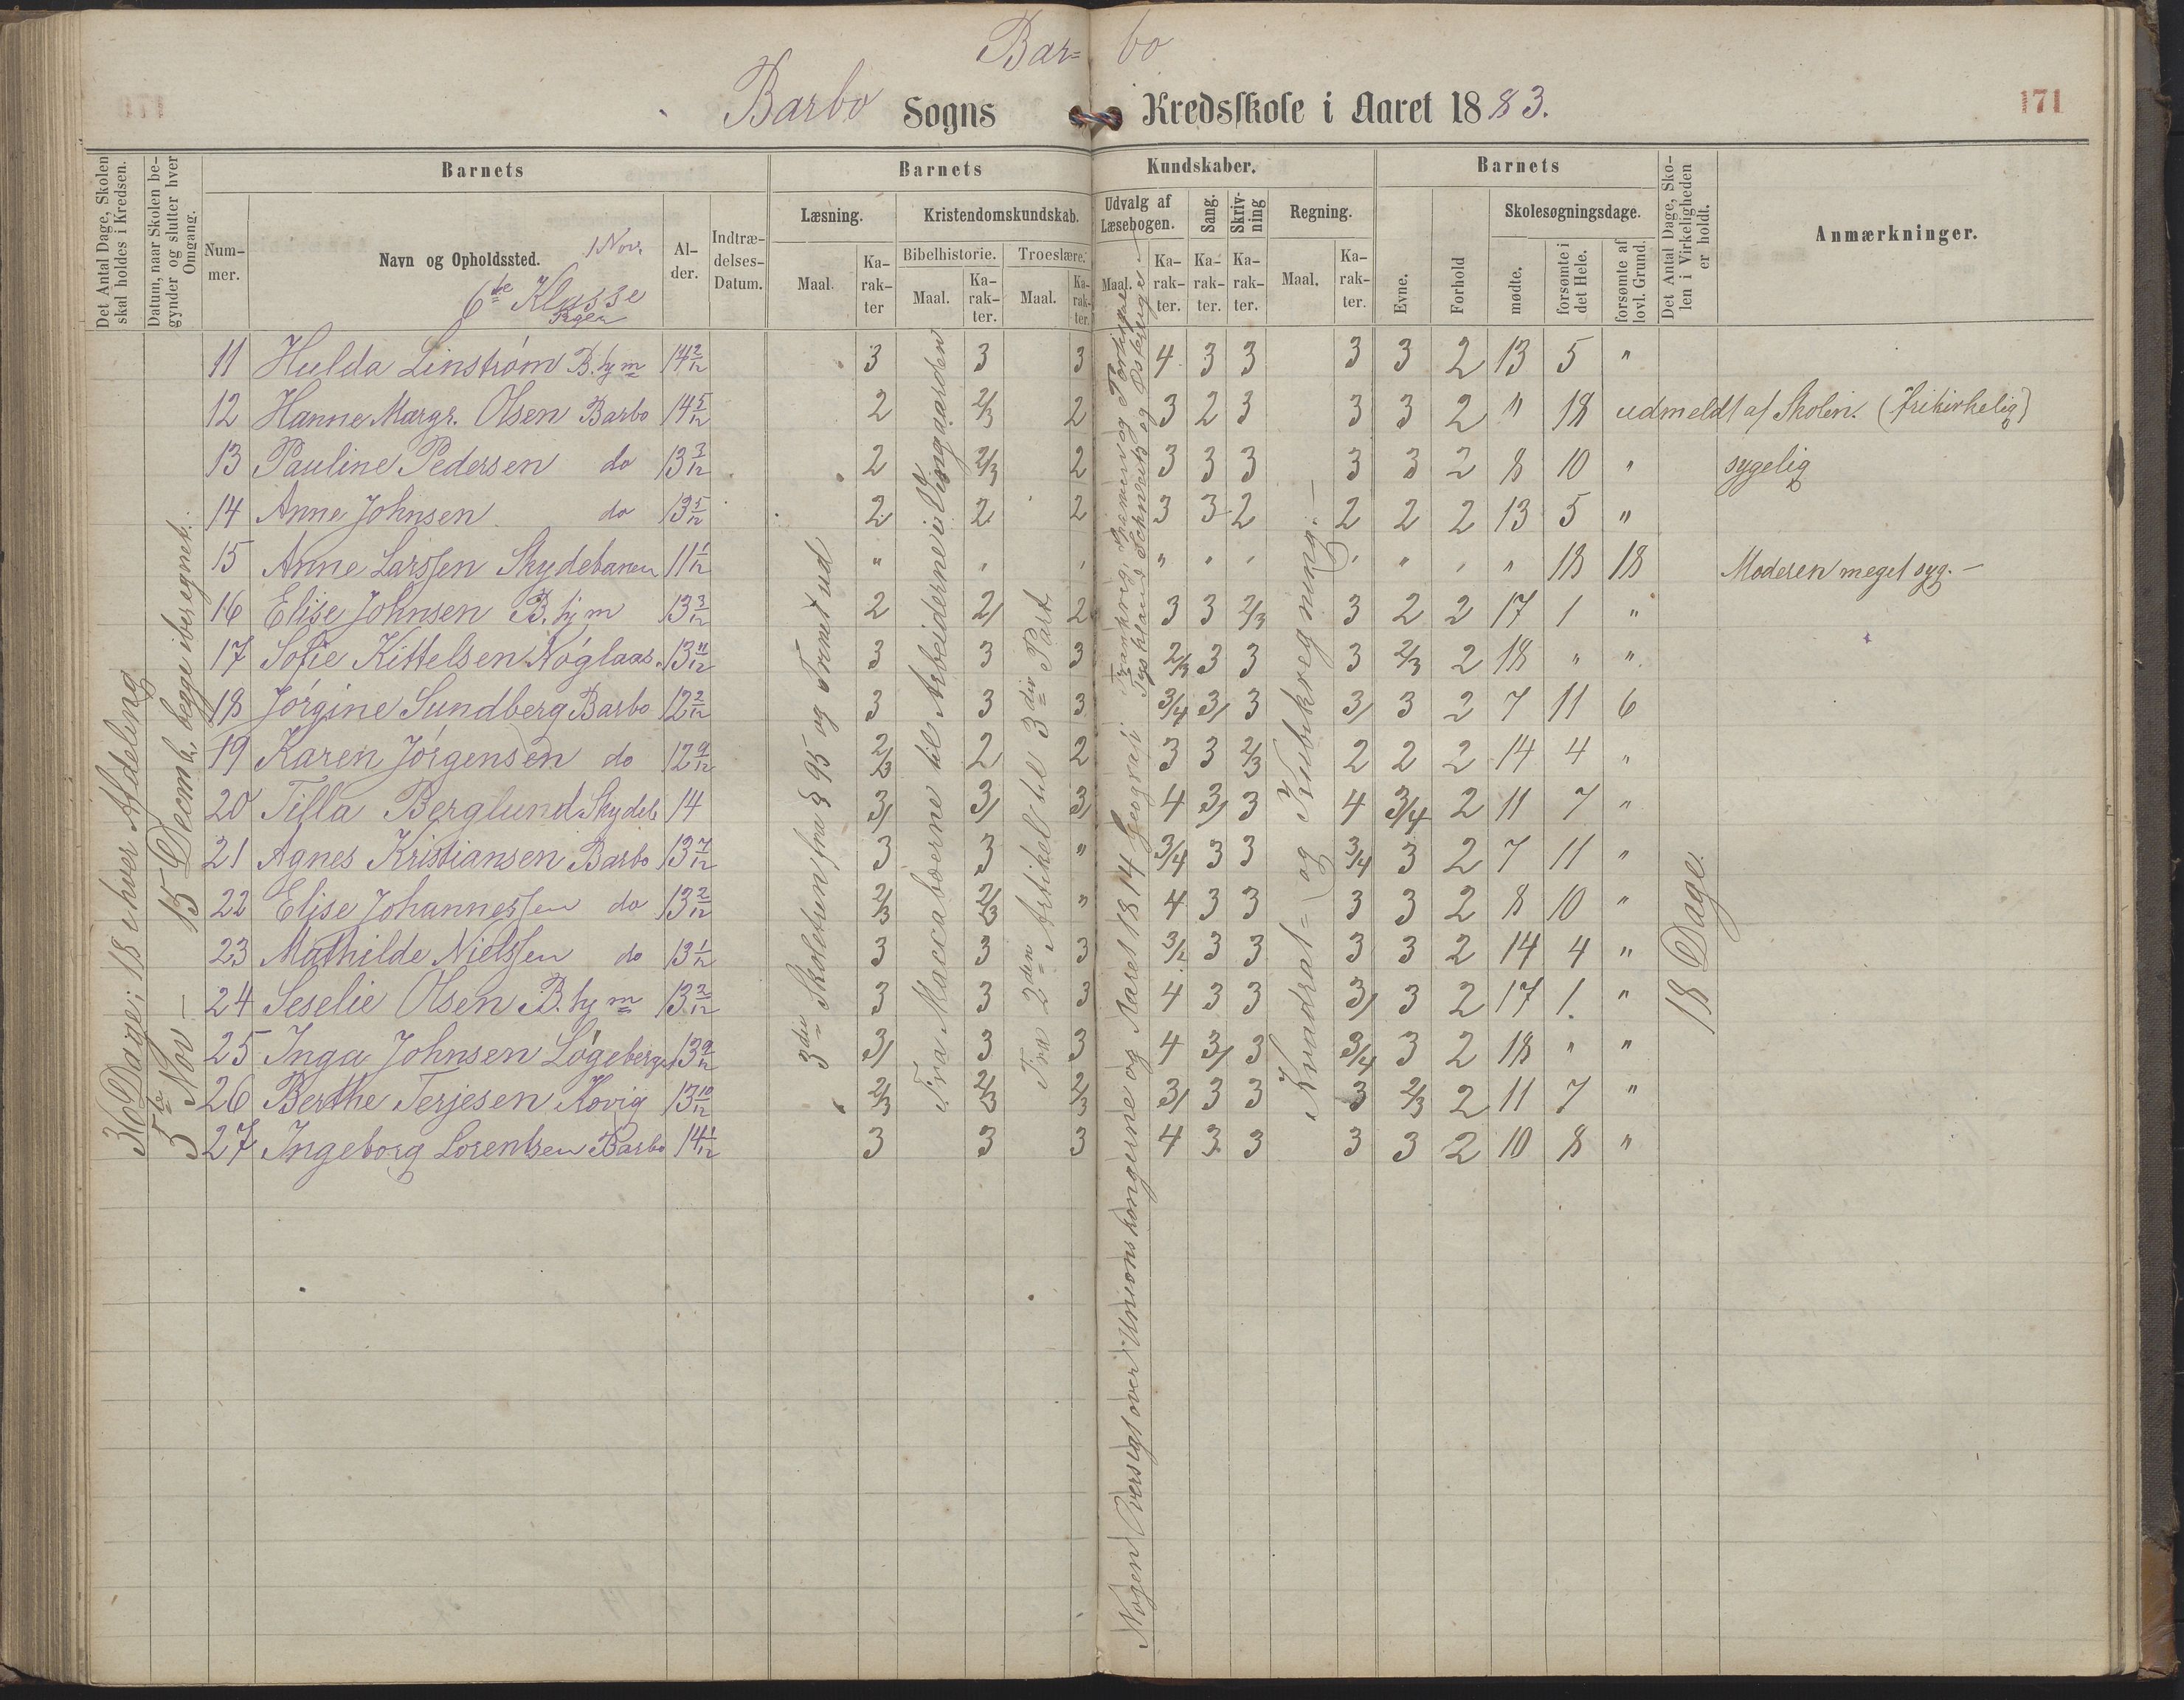 Bar= bo
Barbo Sogns Kredsskole i Aaret 1883.
171
Det Antal Dage, Skolen skal holdes i Kredsen.
Datum, naar Skolen begynder og slutter hver Omgang.
Barnets
Barnets
Kundskaber.
Barnets
Det Antal Dage, Skolen i Virkeligheden er holdt.
Anmærkninger.
Nummer.
Navn og Opholdssted.
1 Novr.
6te Klasse
Piger
Alder.
Indtrædelses-Datum.
Læsning.
Kristendomskundskab.
Udvalg af Læsebogen.
Sang.
Skrivning
Regning.
Evne.
Forhold
Skolesøgningsdage.
Bibelhistorie.
Troeslære.
Maal.
Karakter
Maal.
Karakter.
Maal.
Karakter.
Maal.
Karakter.
Karakter.
Karakter.
Maal.
Karakter.
mødte.
forsømte i det Hele.
forsømte af lovl. Grund.
36 Dage; 18 i hver Afdeling
5te Nov – 15 Decemb, begge iberegnet.
3die Skoletrin fra § 95 og Trinet ud
Fra Maccabæerne til Arbeiderne i Vingaarden
Fra 2den Artikel til 3die Part
Nogen Oversigt over Unionskongerne og Aaret 1814 Geografi: Frankrig, Spanien og Portugal
Tyskland Schweitz og Østerige
Kvadrat= og Kubikregning.–
18 Dage.
11 Hulda Linstrøm B. hj m 14 2/12 3 3 3 4 3 3 3 3 2 13 5 "
12 Hanne Margr. Olsen Barbo 14 5/12 2 2/3 2 3 2 3 3 3 2 " 18 udmeldt af Skolen. (Frikirkelig)
13 Pauline Pedersen do 13 3/12 2 2/3 2 3 3 3 3 3 2 8 10 " sygelig
14 Anne Johnsen do 13 5/12 2 2 2 3 3 2 2 2 2 13 5 "
15 Anne Larssen Skydebanen 11 1/12 " " " " " " " " " " 18 18 Moderen meget syg. –
16 Elise Johnsen B. hj m 13 3/12 2 2/ 2 3 3 2/3 3 2 2 17 1 "
17 Sofie Kittelsen Nøglaas. 13 11/12 3 3 3 2/3 3 3 3 2/3 2 18 " "
18 Jørgine Sundberg Barbo 12 2/12 3 3 3 3/4 3/ 3 3/ 3 2 7 11 6
19 Karen Jørgensen do 12 9/12 2/3 2 2 3 3 2/3 2 2 2 14 4 "
20 Tilla Berglund Skydeb 14 3/ 3/ 3/ 4 3/ 3 4 3/4 2 11 7 "
21 Agnes Kristiansen Barbo 13 7/12 3 3 " 3/4 3 3 3/4 3 2 7 11 "
22 Elise Johannessen do 13 2/12 2/3 2/3 " 4 3 3 3 3 2 8 10 "
23 Mathilde Nielssen do 13 1/12 3 3 3 3/2 3 3 3 3 2 14 4 "
24 Seselie Olsen B. hj m 13 2/12 3 3 3 4 3 3 3/ 3 2 17 1. "
25 Inga Johnsen Løgeberget 13 9/12 3/ 3 3 4 3/ 3 3/4 3 2 18 " "
26 Berthe Terjesen Kovig 13 10/12 2/3 2/3 2/3 3/ 3 3 3 2/3 2 11 7 "
27 Ingeborg Lorentsen Barbo 14 1/12 3 3 3 4 3 3 3 3 2 10 8 "